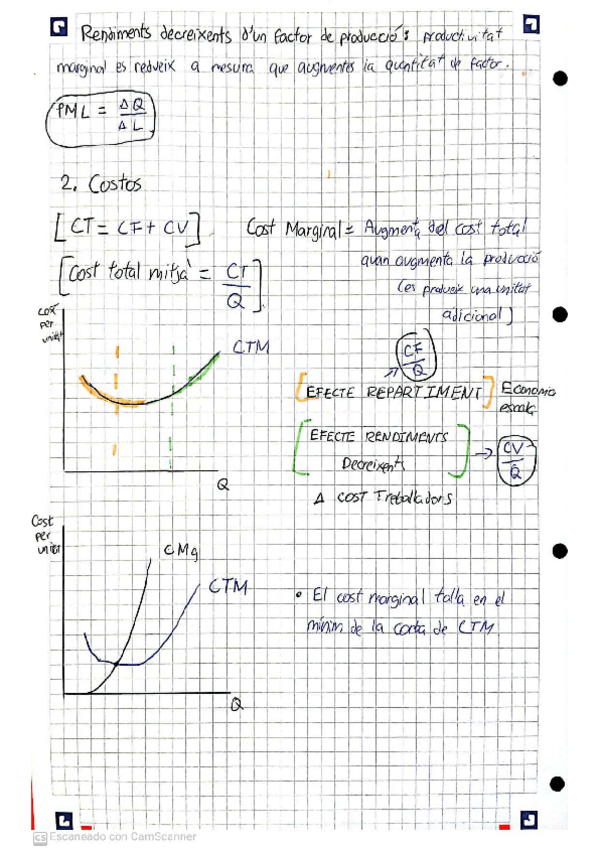 Rendiments decreixents d'un factor de producció: productivitat
marginal es redueix a mesura que augmentes la quantitat de factor.
PML = ΔQ / ΔL
2. Costos
[CT = CF + CV]
Cost Marginal = Augment del cost total
quan augmenta la producció
(es produeix una unitat
adicional)
[Cost total mitjà = CT / Q]
Cost
per
unitat
CTM
Q
CF / Q
[EFECTE REPARTIMENT] Economia
escala
[EFECTE RENDIMENTS
Decreixents] → CV / Q
Δ COST Treballadors
Cost
per
unitat
CMg
CTM
Q
• El cost marginal talla en el
mínim de la corba de CTM.
CS Escaneado con CamScanner